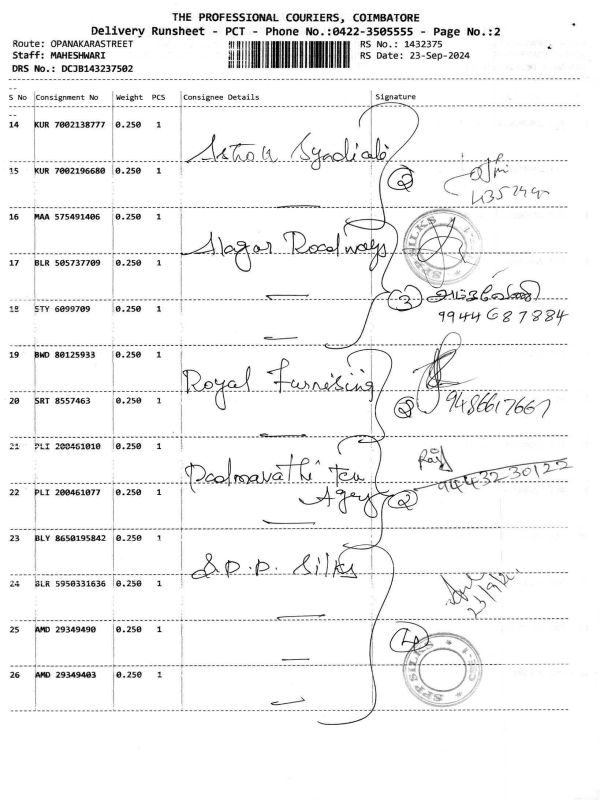 THE PROFESSIONAL COURIERS, COIMBATORE
Delivery Runsheet - PCT - Phone No.:0422-3505555 - Page No.:2
Route: OPANAKARASTREET RS No.: 1432375
Staff: MAHESHWARI RS Date: 23-Sep-2024
DRS No.: DCJB143237502
--
S No Consignment No Weight PCS Consignee Details Signature
--
14 KUR 7002138777 0.250 1
Ashok Syndicate
15 KUR 7002196680 0.250 1 2
16 MAA 575491406 0.250 1
Nagar Roadways
SPP SILKS
17 BLR 505737709 0.250 1
3
18 STY 6099709 0.250 1 9944687884
19 BWD 80125933 0.250 1
Royal Furnising
20 SRT 8557463 0.250 1 2 9486617667
21 PLI 200461010 0.250 1
Padmavathi Tex 9443230122
22 PLI 200461077 0.250 1 Agey 2
23 BLY 8650195842 0.250 1
S.P.P. Silks
24 BLR 5950331636 0.250 1 23/9/24
25 AMD 29349490 0.250 1 4
26 AMD 29349403 0.250 1 SPP SILKS